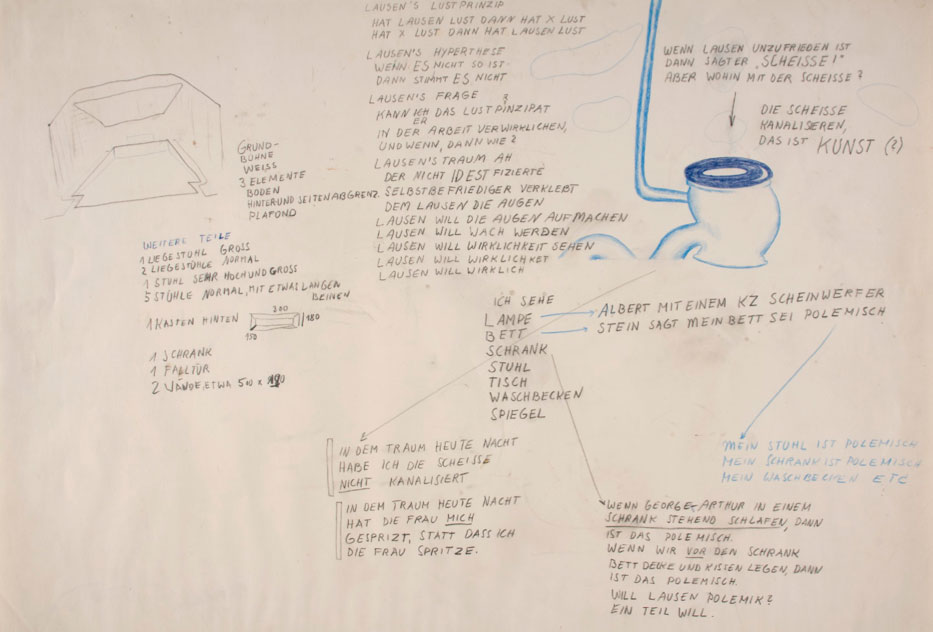 LAUSEN'S LUSTPRINZIP
HAT LAUSEN LUST DANN HAT X LUST
HAT X LUST DANN HAT LAUSEN LUST
LAUSEN'S HYPERTHESE
WENN ES NICHT SO IST
DANN STIMMT ES NICHT
LAUSEN'S FRAGE ?
KANN ICH DAS LUSTPINZIPAT
ER
IN DER ARBEIT VERWIRKLICHEN,
UND WENN, DANN WIE?
LAUSEN'S TRAUM AH
DER NICHT IDESTFIZIERTE
SELBSTBEFRIEDIGER VERKLEBT
DEM LAUSEN DIE AUGEN
LAUSEN WILL DIE AUGEN AUFMACHEN
LAUSEN WILL WACH WERDEN
LAUSEN WILL WIRKLICHKEIT SEHEN
LAUSEN WILL WIRKLICHKET
LAUSEN WILL WIRKLICH
WENN LAUSEN UNZUFRIEDEN IST
DANN SAGT ER „SCHEISSE!"
ABER WOHIN MIT DER SCHEISSE?
DIE SCHEISSE
KANALISEREN,
DAS IST KUNST (?)
GRUND-
BÜHNE
WEISS
3 ELEMENTE
BODEN
HINTER UND SEITENABGRENZ.
PLAFOND
WEITERE TEILE
1 LIEGESTUHL GROSS
2 LIEGESTÜHLE NORMAL
1 STUHL SEHR HOCH UND GROSS
5 STÜHLE NORMAL, MIT ETWAS LANGEN
BEINEN
1 KASTEN HINTEN
200
180
150
1 SCHRANK
1 FALLTÜR
2 WÄNDE, ETWA 500 x
ICH SEHE
LAMPE
BETT
SCHRANK
STUHL
TISCH
WASCHBECKEN
SPIEGEL
ALBERT MIT EINEM KZ SCHEINWERFER
STEIN SAGT MEIN BETT SEI POLEMISCH
MEIN STUHL IST POLEMISCH
MEIN SCHRANK IST POLEMISCH
MEIN WASCHBECKEN ETC
IN DEM TRAUM HEUTE NACHT
HABE ICH DIE SCHEISSE
NICHT KANALISIERT
IN DEM TRAUM HEUTE NACHT
HAT DIE FRAU MICH
GESPRIZT, STATT DASS ICH
DIE FRAU SPRITZE.
WENN GEORGE-ARTHUR IN EINEM
SCHRANK STEHEND SCHLAFEN, DANN
IST DAS POLEMISCH.
WENN WIR VOR DEN SCHRANK
BETT DECKE UND KISSEN LEGEN, DANN
IST DAS POLEMISCH.
WILL LAUSEN POLEMIK?
EIN TEIL WILL.